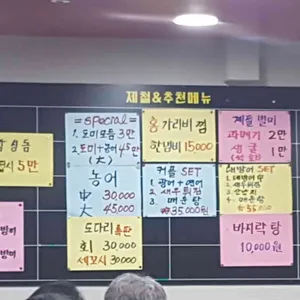 제철&추천메뉴
=special=
1. 도미모듬 3만
2. 도미+광어 45만
(大)
홍가리비찜
한냄비 15000
계절별미
과메기 2만
생굴 1만
5만
농어
中 30,000
大 45,000
커플 SET
1. 광어+연어
2. 새우튀김
3. 매운탕
₩35,000원
SET
55,000
도다리
회 30,000
세꼬시 30,000
바지락탕
10,000원